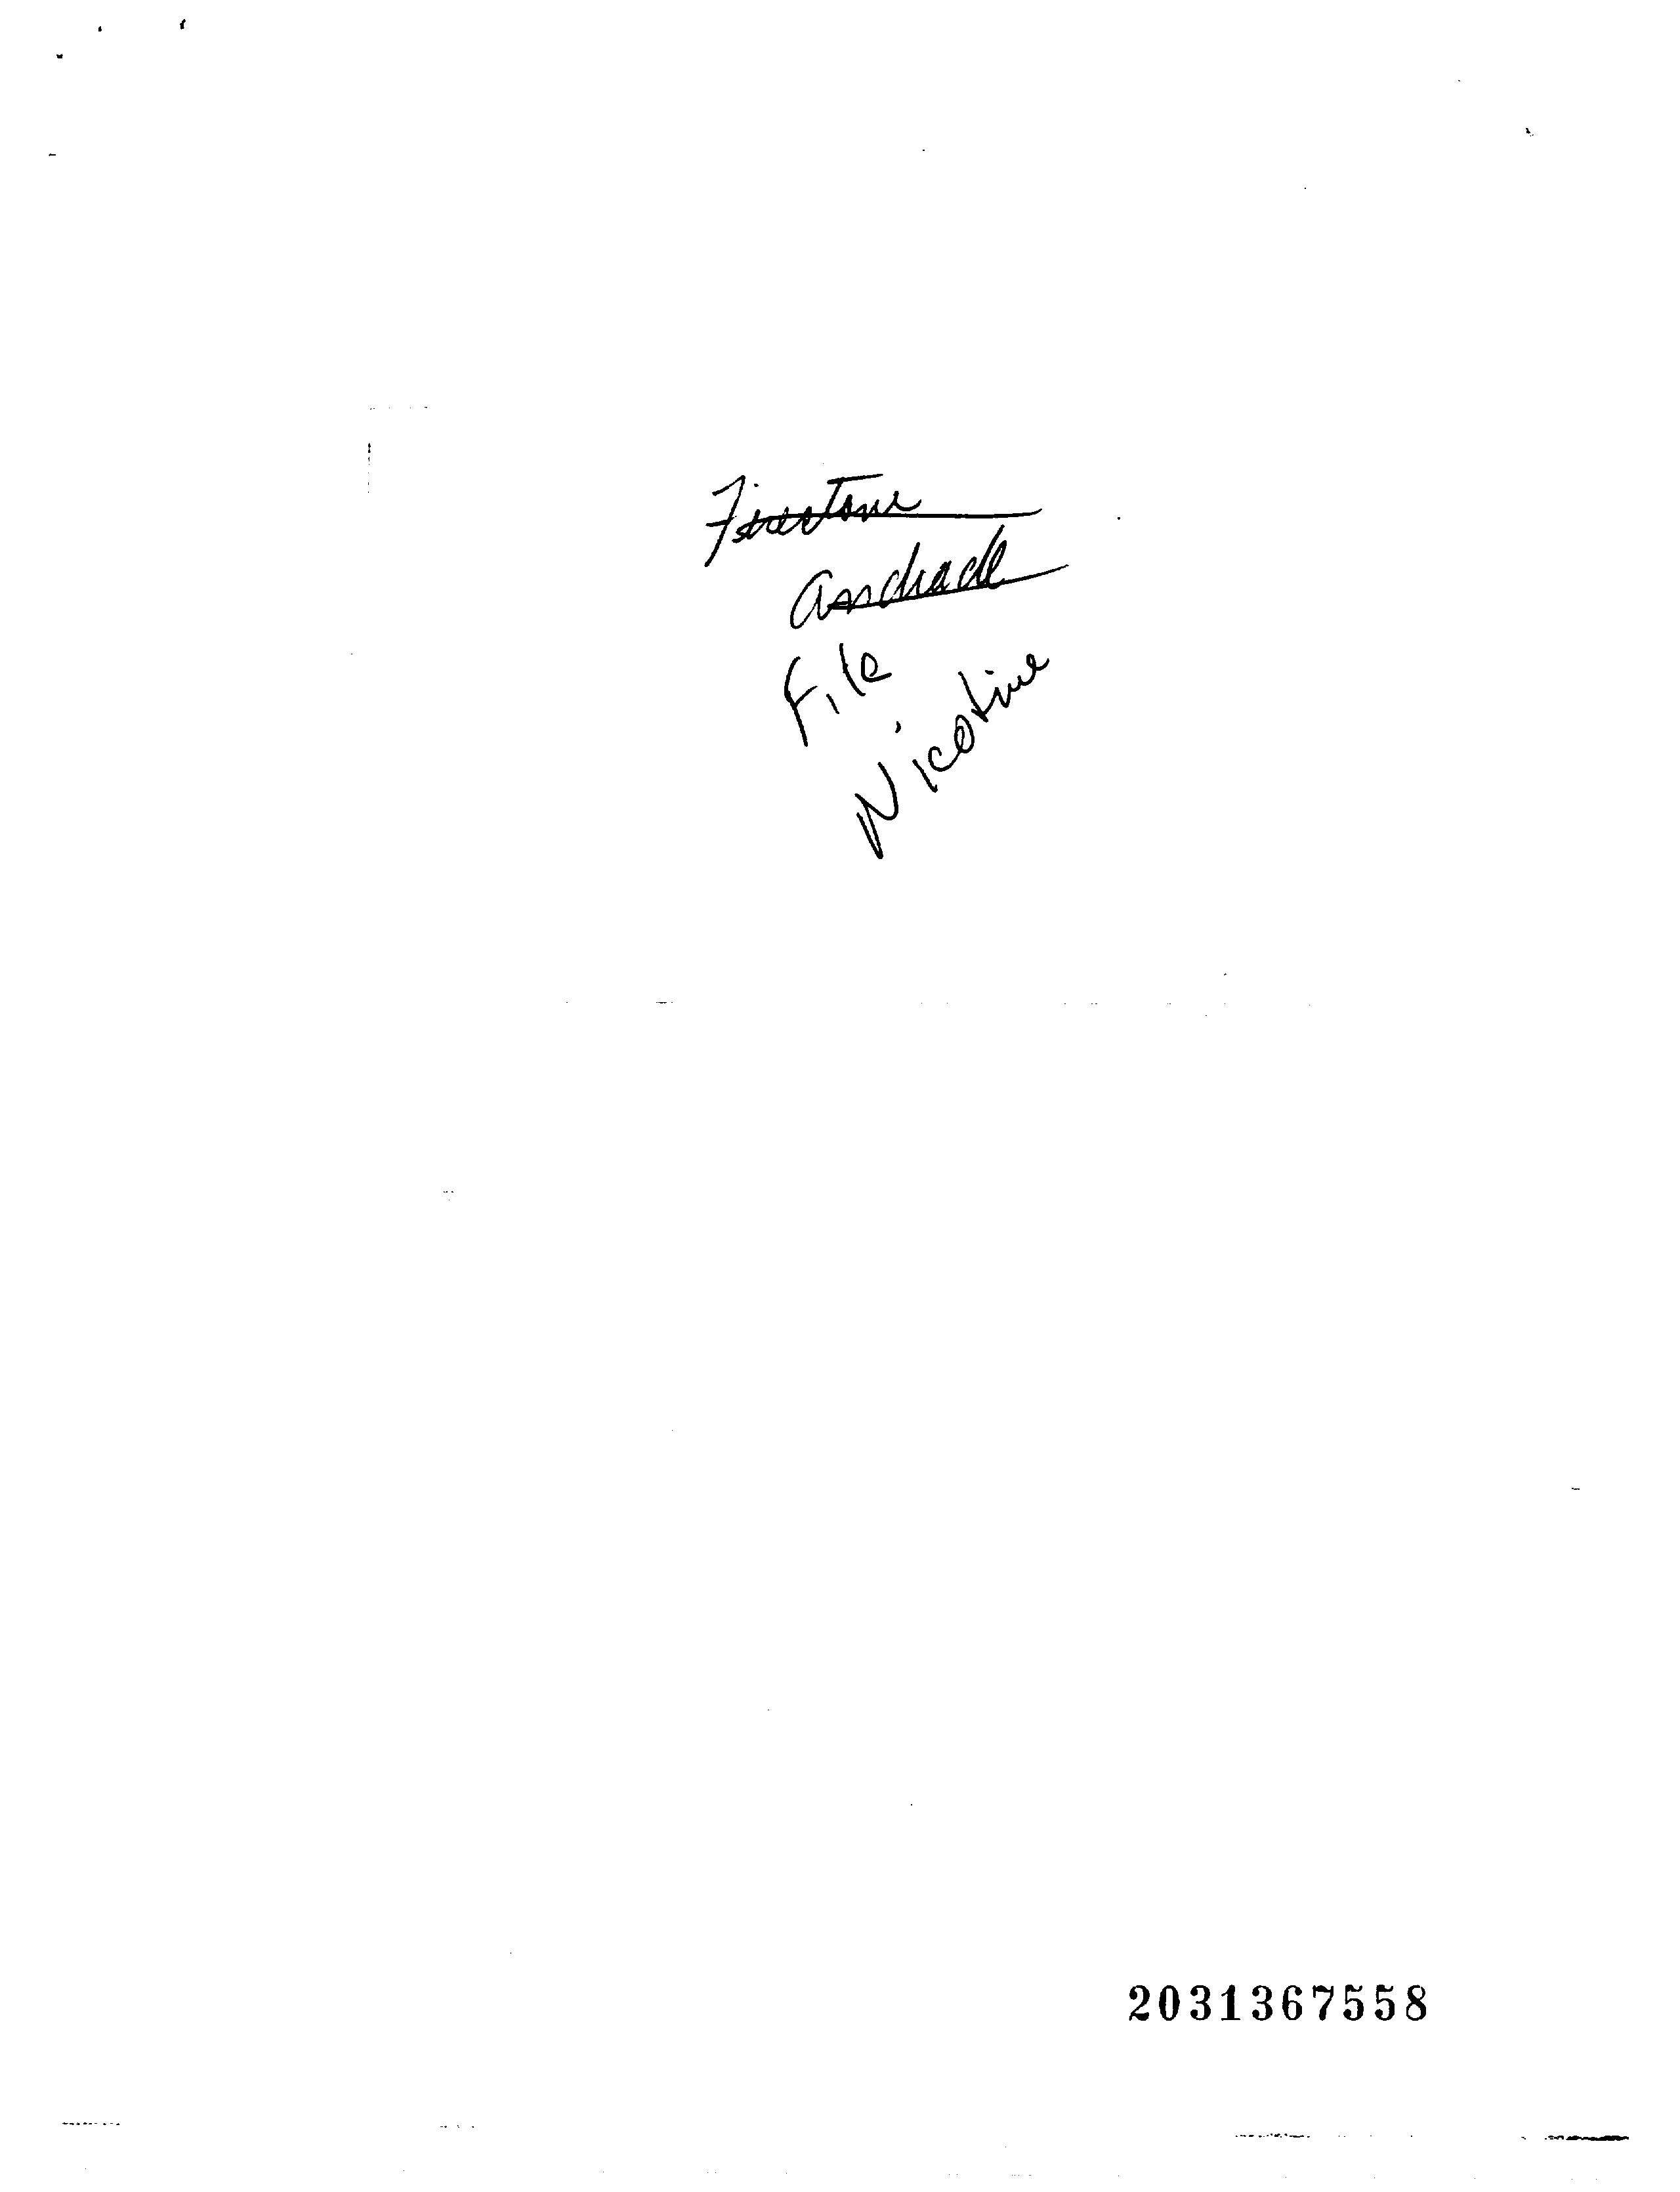 Firestone
Andrade
File
Nicotine
2031367558